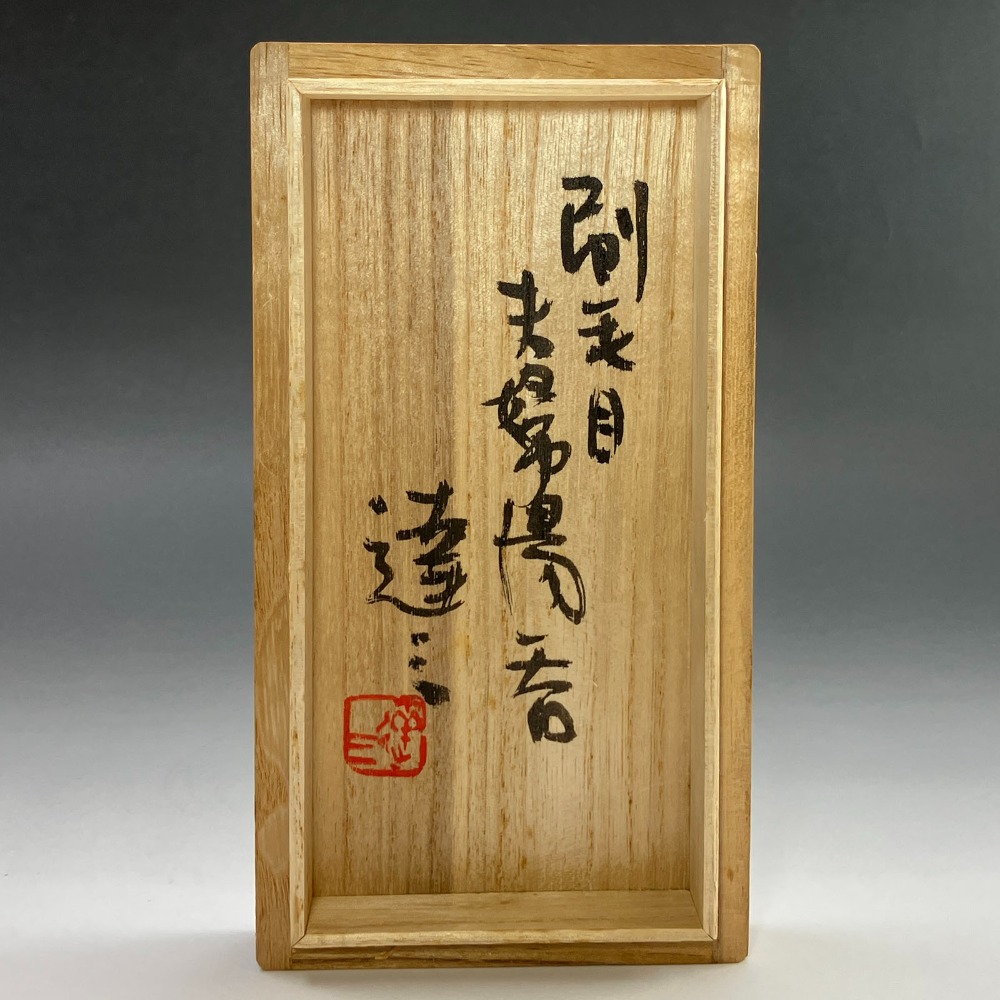 刷毛目
夫婦湯吞
達三